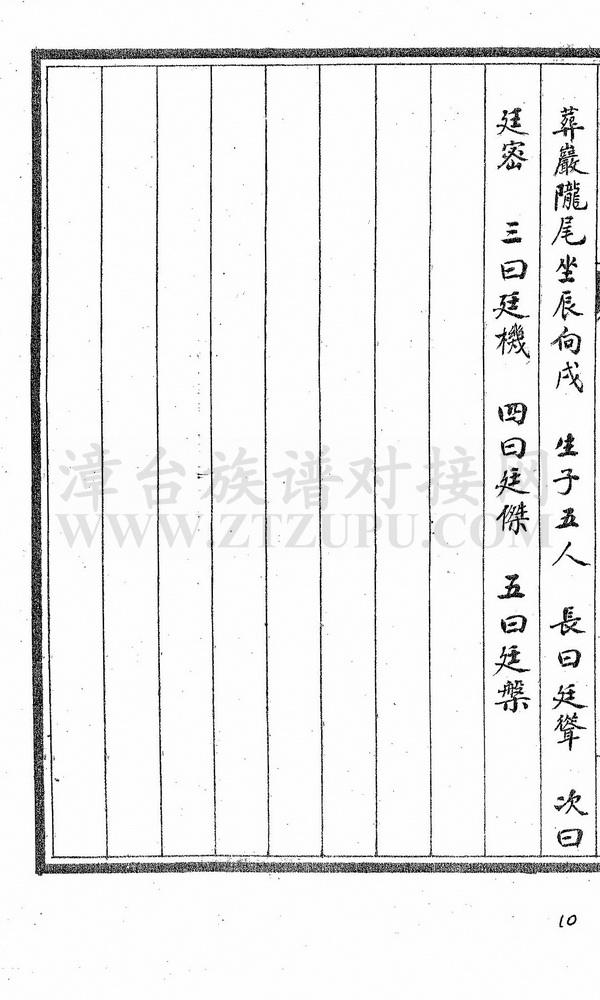 葬巖隴尾坐辰向戌　生子五人　長曰廷聳　次曰
廷密　三曰廷機　四曰廷傑　五曰廷槃
漳台族谱对接网
WWW.ZTZUPU.COM
10